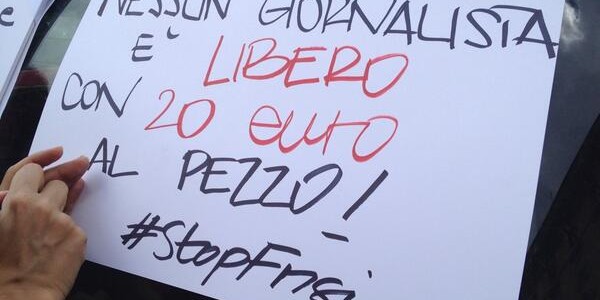 NESSUN GIORNALISTA
È LIBERO
CON 20 euro
AL PEZZO!
#StopFrasi